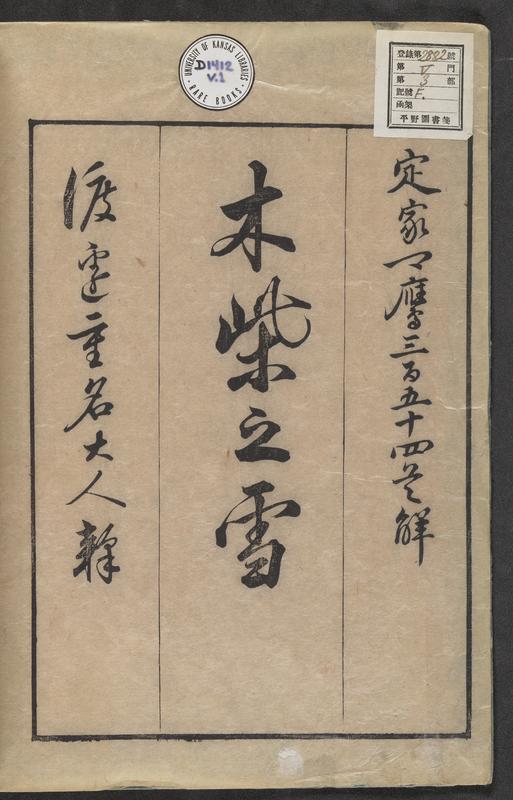 UNIVERSITY OF KANSAS LIBRARIES
D1412
V.1
RARE BOOKS
登錄第2882號
第 V 門
第 3 部
記號 F.
函架
平野圖書箋
定家卿鷹三百五十四首解
木柴之雪
渡邊重名大人